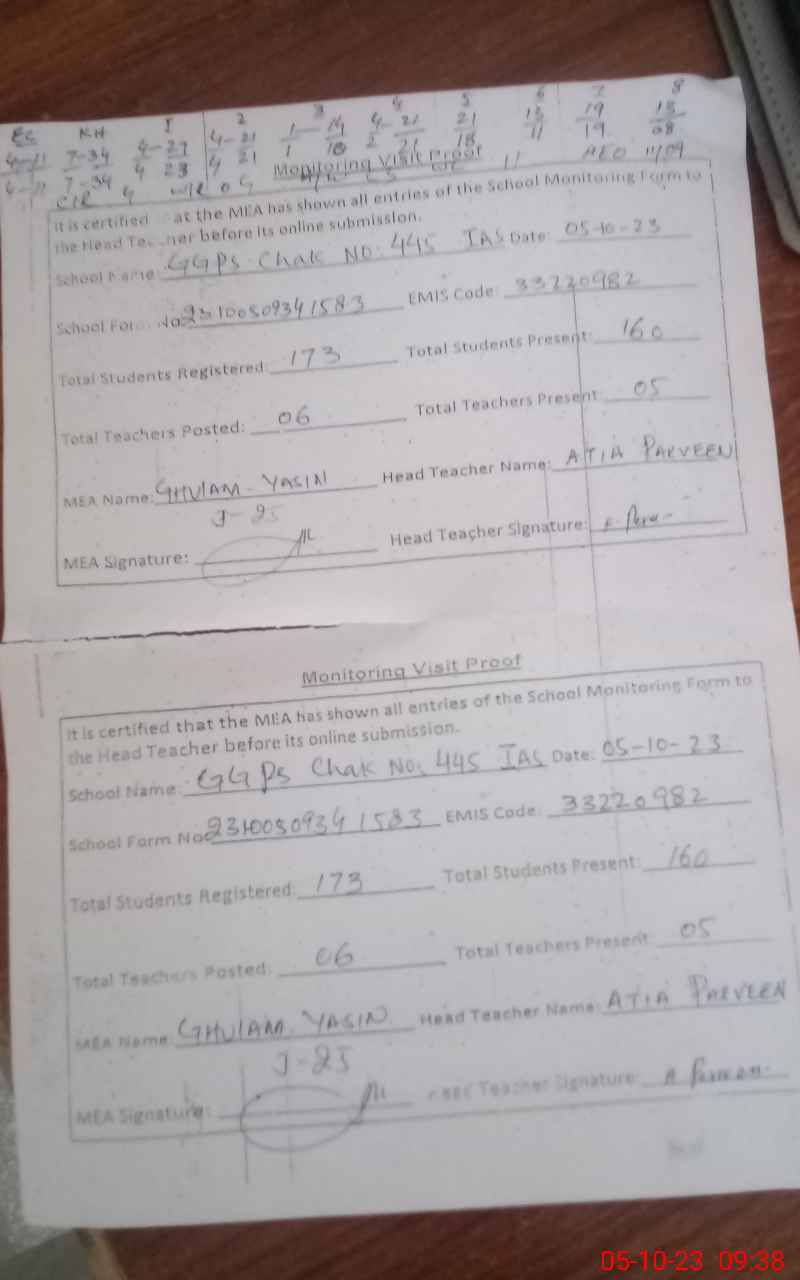 1 2 3 4 5 6 7 8
KH 4-27 4-21 1-14 4-21 21 13 19 13
7-34 4 23 4 21 1 10 2 21 18 11 19 08
7-34
Monitoring Visit Proof
It is certified at the MEA has shown all entries of the School Monitoring Form to
the Head Te ner before its online submission.
School Name GGPS Chak NO. 445 IAS Date: 05-10-23
School For No 2310050934 1583 EMIS Code: 33220982
Total Students Registered: 173 Total Students Present: 160
Total Teachers Posted: 06 Total Teachers Present 05
MEA Name: GHULAM YASIN Head Teacher Name: ATIA PARVEEN
J-25
MEA Signature: Head Teacher Signature:
Monitoring Visit Proof
It is certified that the MEA has shown all entries of the School Monitoring Form to
the Head Teacher before its online submission.
School Name: GGPS Chak No. 445 IAS Date: 05-10-23
School Form No 2310050934 1583 EMIS Code: 33220982
Total Students Registered: 173 Total Students Present: 160
Total Teachers Posted: 06 Total Teachers Present 05
MEA Name GHULAM YASIN Head Teacher Name: ATIA PARVEEN
J-25
MEA Signature: Teacher Signature:
05-10-23 09:38